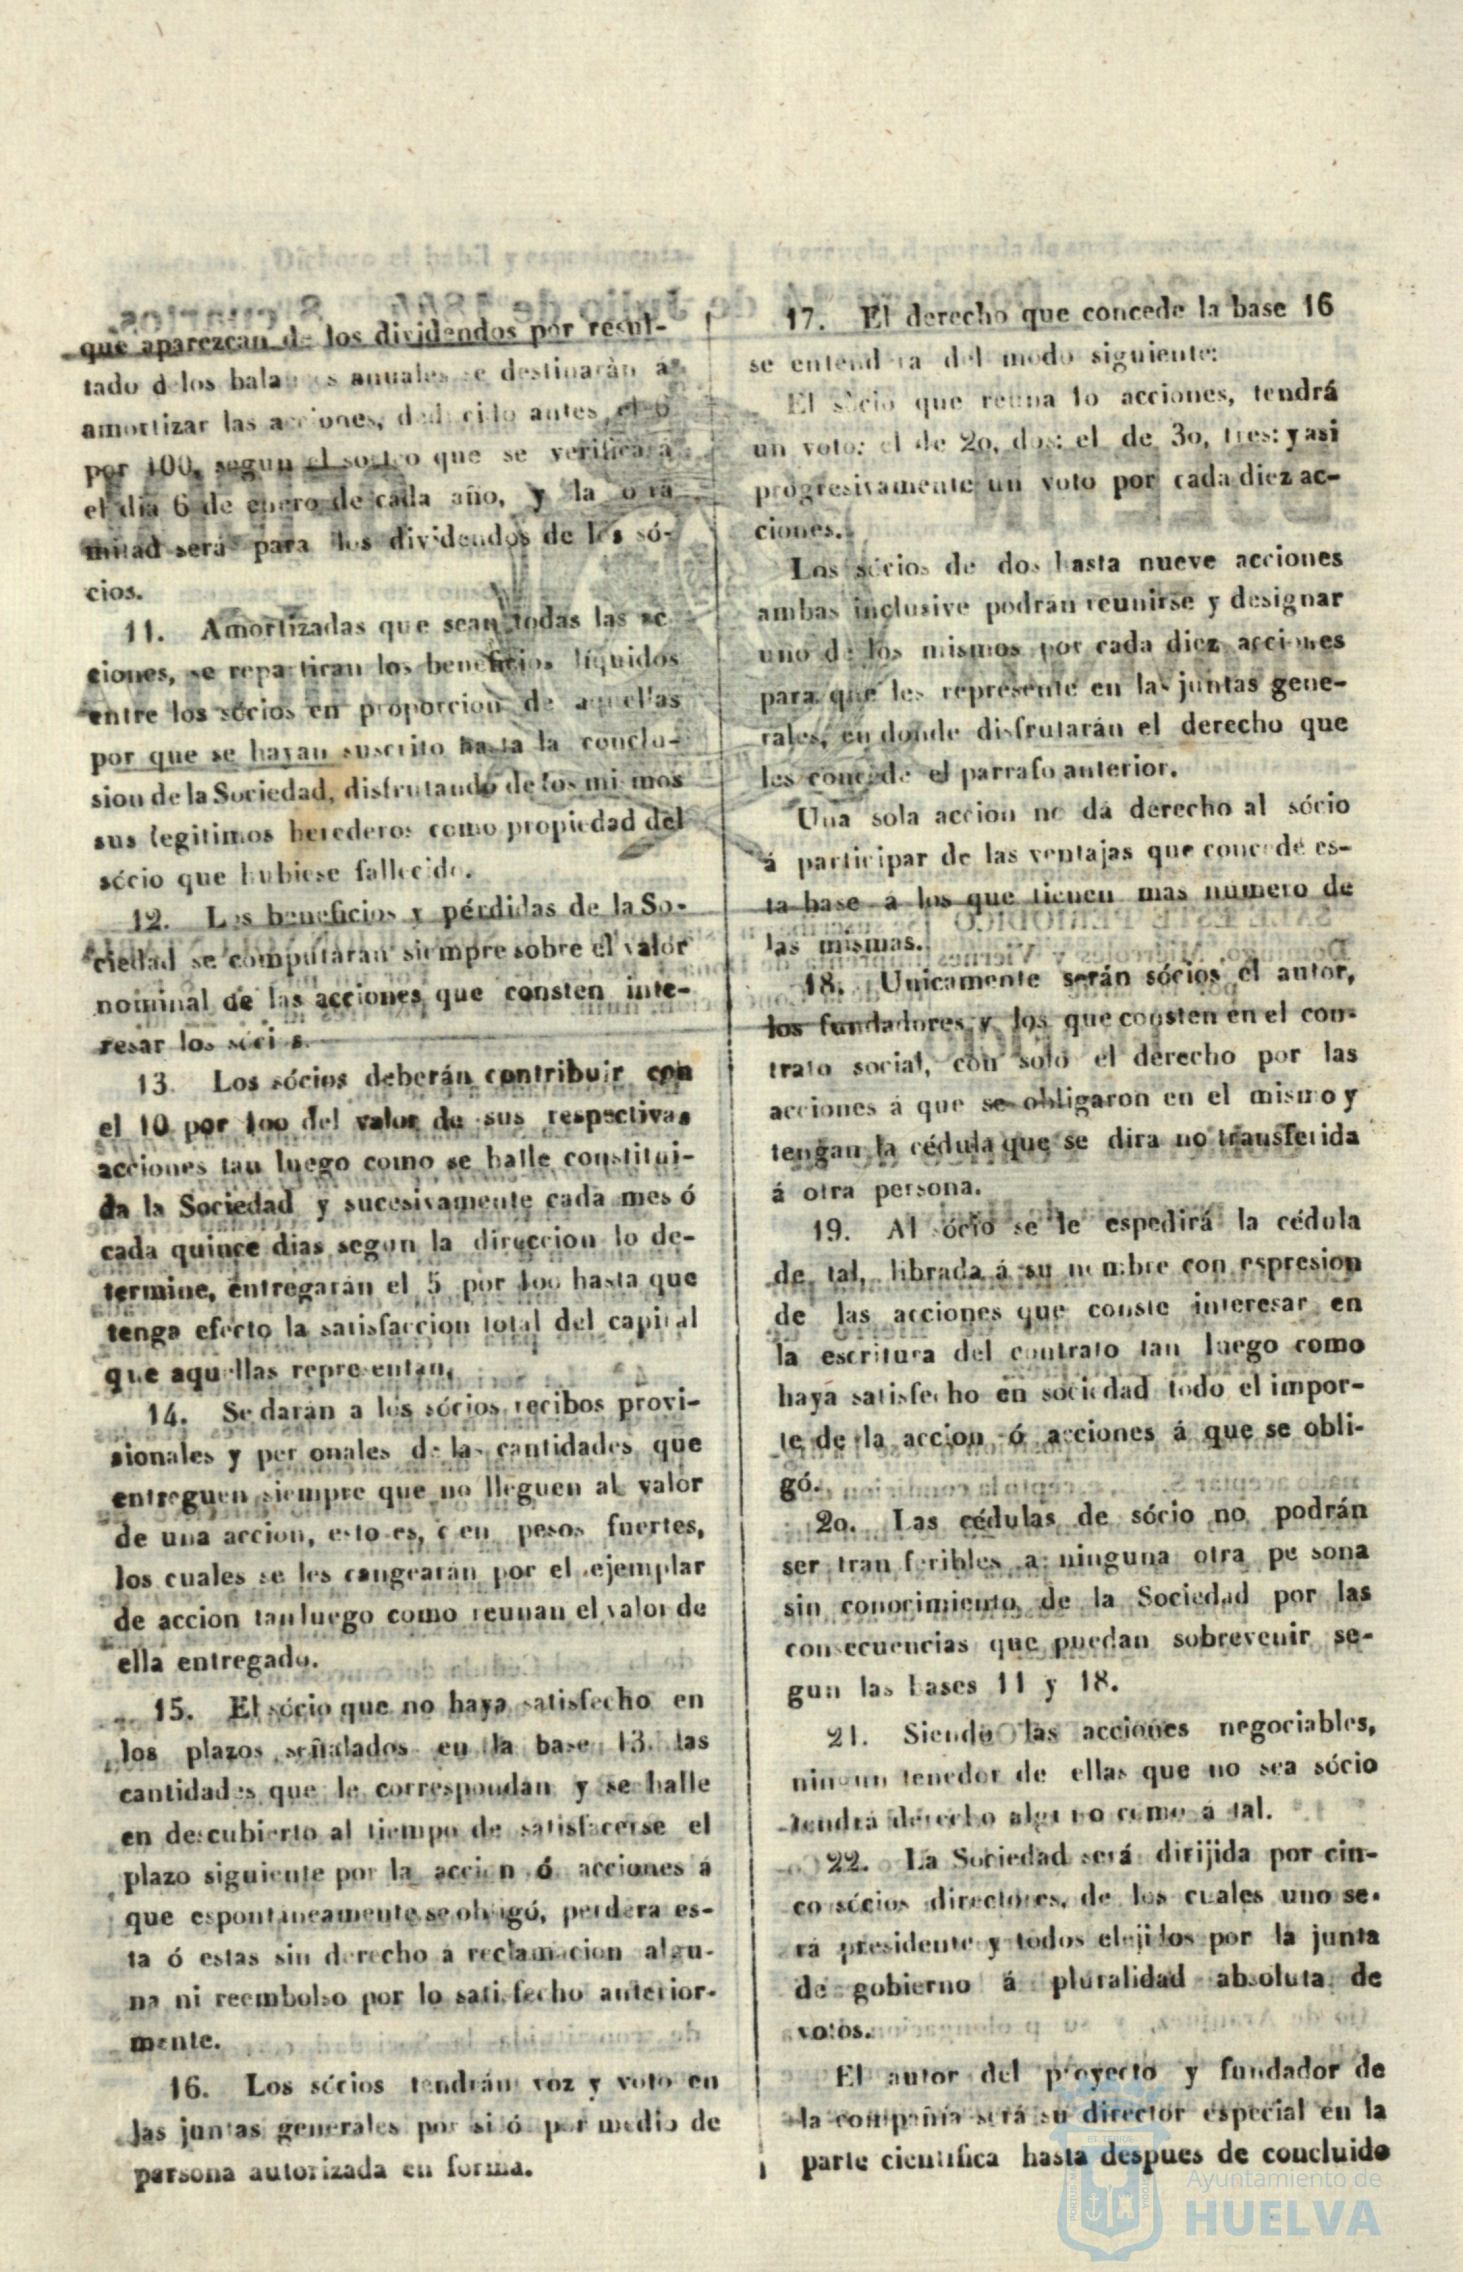 que aparezcan de los dividendos por resul-
tado de los balances anuales se destinarán á
amortizar las acciones, deducido antes el 6
por 100, segun el sorteo que se verificará
el dia 6 de enero de cada año, y la otra
mitad será para los dividendos de los só-
cios.
11. Amortizadas que sean todas las ac
ciones, se repartiran los beneficios líquidos
entre los sócios en proporcion de aquellas
por que se hayan suscrito hasta la conclu-
sion de la Sociedad, disfrutando de los mismos
sus legitimos herederos como propiedad del
sócio que hubiese fallecido.
12. Los beneficios y pérdidas de la So-
ciedad se computarán siempre sobre el valor
nominal de las acciones que consten inte-
resar los sócios.
13. Los sócios deberán contribuir con
el 10 por 100 del valor de sus respectivas
acciones tan luego como se halle constitui-
da la Sociedad y sucesivamente cada mes ó
cada quince dias segun la direccion lo de-
termine, entregarán el 5 por 100 hasta que
tenga efecto la satisfaccion total del capital
que aquellas representan.
14. Se darán a los sócios recibos provi-
sionales y personales de las cantidades que
entreguen siempre que no lleguen al valor
de una accion, esto es, cien pesos fuertes,
los cuales se les cangearán por el ejemplar
de accion tan luego como reunan el valor de
ella entregado.
15. El sócio que no haya satisfecho en
los plazos señalados en la base 13. las
cantidades que le correspondan y se halle
en descubierto al tiempo de satisfacerse el
plazo siguiente por la accion ó acciones á
que espontáneamente se obligó, perderá es-
ta ó estas sin derecho á reclamacion algu-
na ni reembolso por lo satisfecho anterior-
mente.
16. Los sócios tendrán voz y voto en
las juntas generales por si ó por medio de
persona autorizada en forma.
17. El derecho que concede la base 16
se entenderá del modo siguiente:
El sócio que reuna 10 acciones, tendrá
un voto: el de 20, dos: el de 30, tres: y asi
progresivamente un voto por cada diez ac-
ciones.
Los sócios de dos hasta nueve acciones
ambas inclusive podrán reunirse y designar
uno de los mismos por cada diez acciones
para que les represente en las juntas gene-
rales, en donde disfrutarán el derecho que
les concede el parrafo anterior.
Una sola accion no dá derecho al sócio
á participar de las ventajas que concede es-
ta base á los que tienen mas número de
las mismas.
18. Unicamente serán sócios el autor,
los fundadores y los que consten en el con-
trato social, con solo el derecho por las
acciones á que se obligaron en el mismo y
tengan la cédula que se dira no transferida
á otra persona.
19. Al sócio se le espedirá la cédula
de tal, librada á su nombre con espresion
de las acciones que conste interesar en
la escritura del contrato tan luego como
haya satisfecho en sociedad todo el impor-
te de la accion ó acciones á que se obli-
gó.
20. Las cédulas de sócio no podrán
ser transferibles a ninguna otra persona
sin conocimiento de la Sociedad por las
consecuencias que puedan sobrevenir se-
gun las bases 11 y 18.
21. Siendo las acciones negociables,
ningun tenedor de ellas que no sea sócio
tendrá derecho alguno como á tal.
22. La Sociedad será dirijida por cin-
co sócios directores, de los cuales uno se-
rá presidente y todos elejidos por la junta
de gobierno á pluralidad absoluta de
votos.
El autor del proyecto y fundador de
la compañía será su director especial en la
parte cientifica hasta despues de concluido
Ayuntamiento de
HUELVA